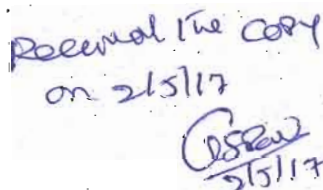 Received the copy
on 2/5/17
2/5/17